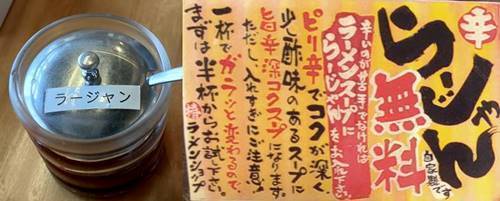 ラージャン
辛
らーじゃん
無料
自家製です
辛いのが苦手でなければ
ラーメンスープに
らーじゃんをお入れ下さい。
ピリ辛でコクが深く
少酸味のあるスープに
旨辛深コクスープになります。
ただし入れすぎにご注意!
一杯でガラッと変わるので、
まずは半杯からお試し下さい。
ラーメンショップ